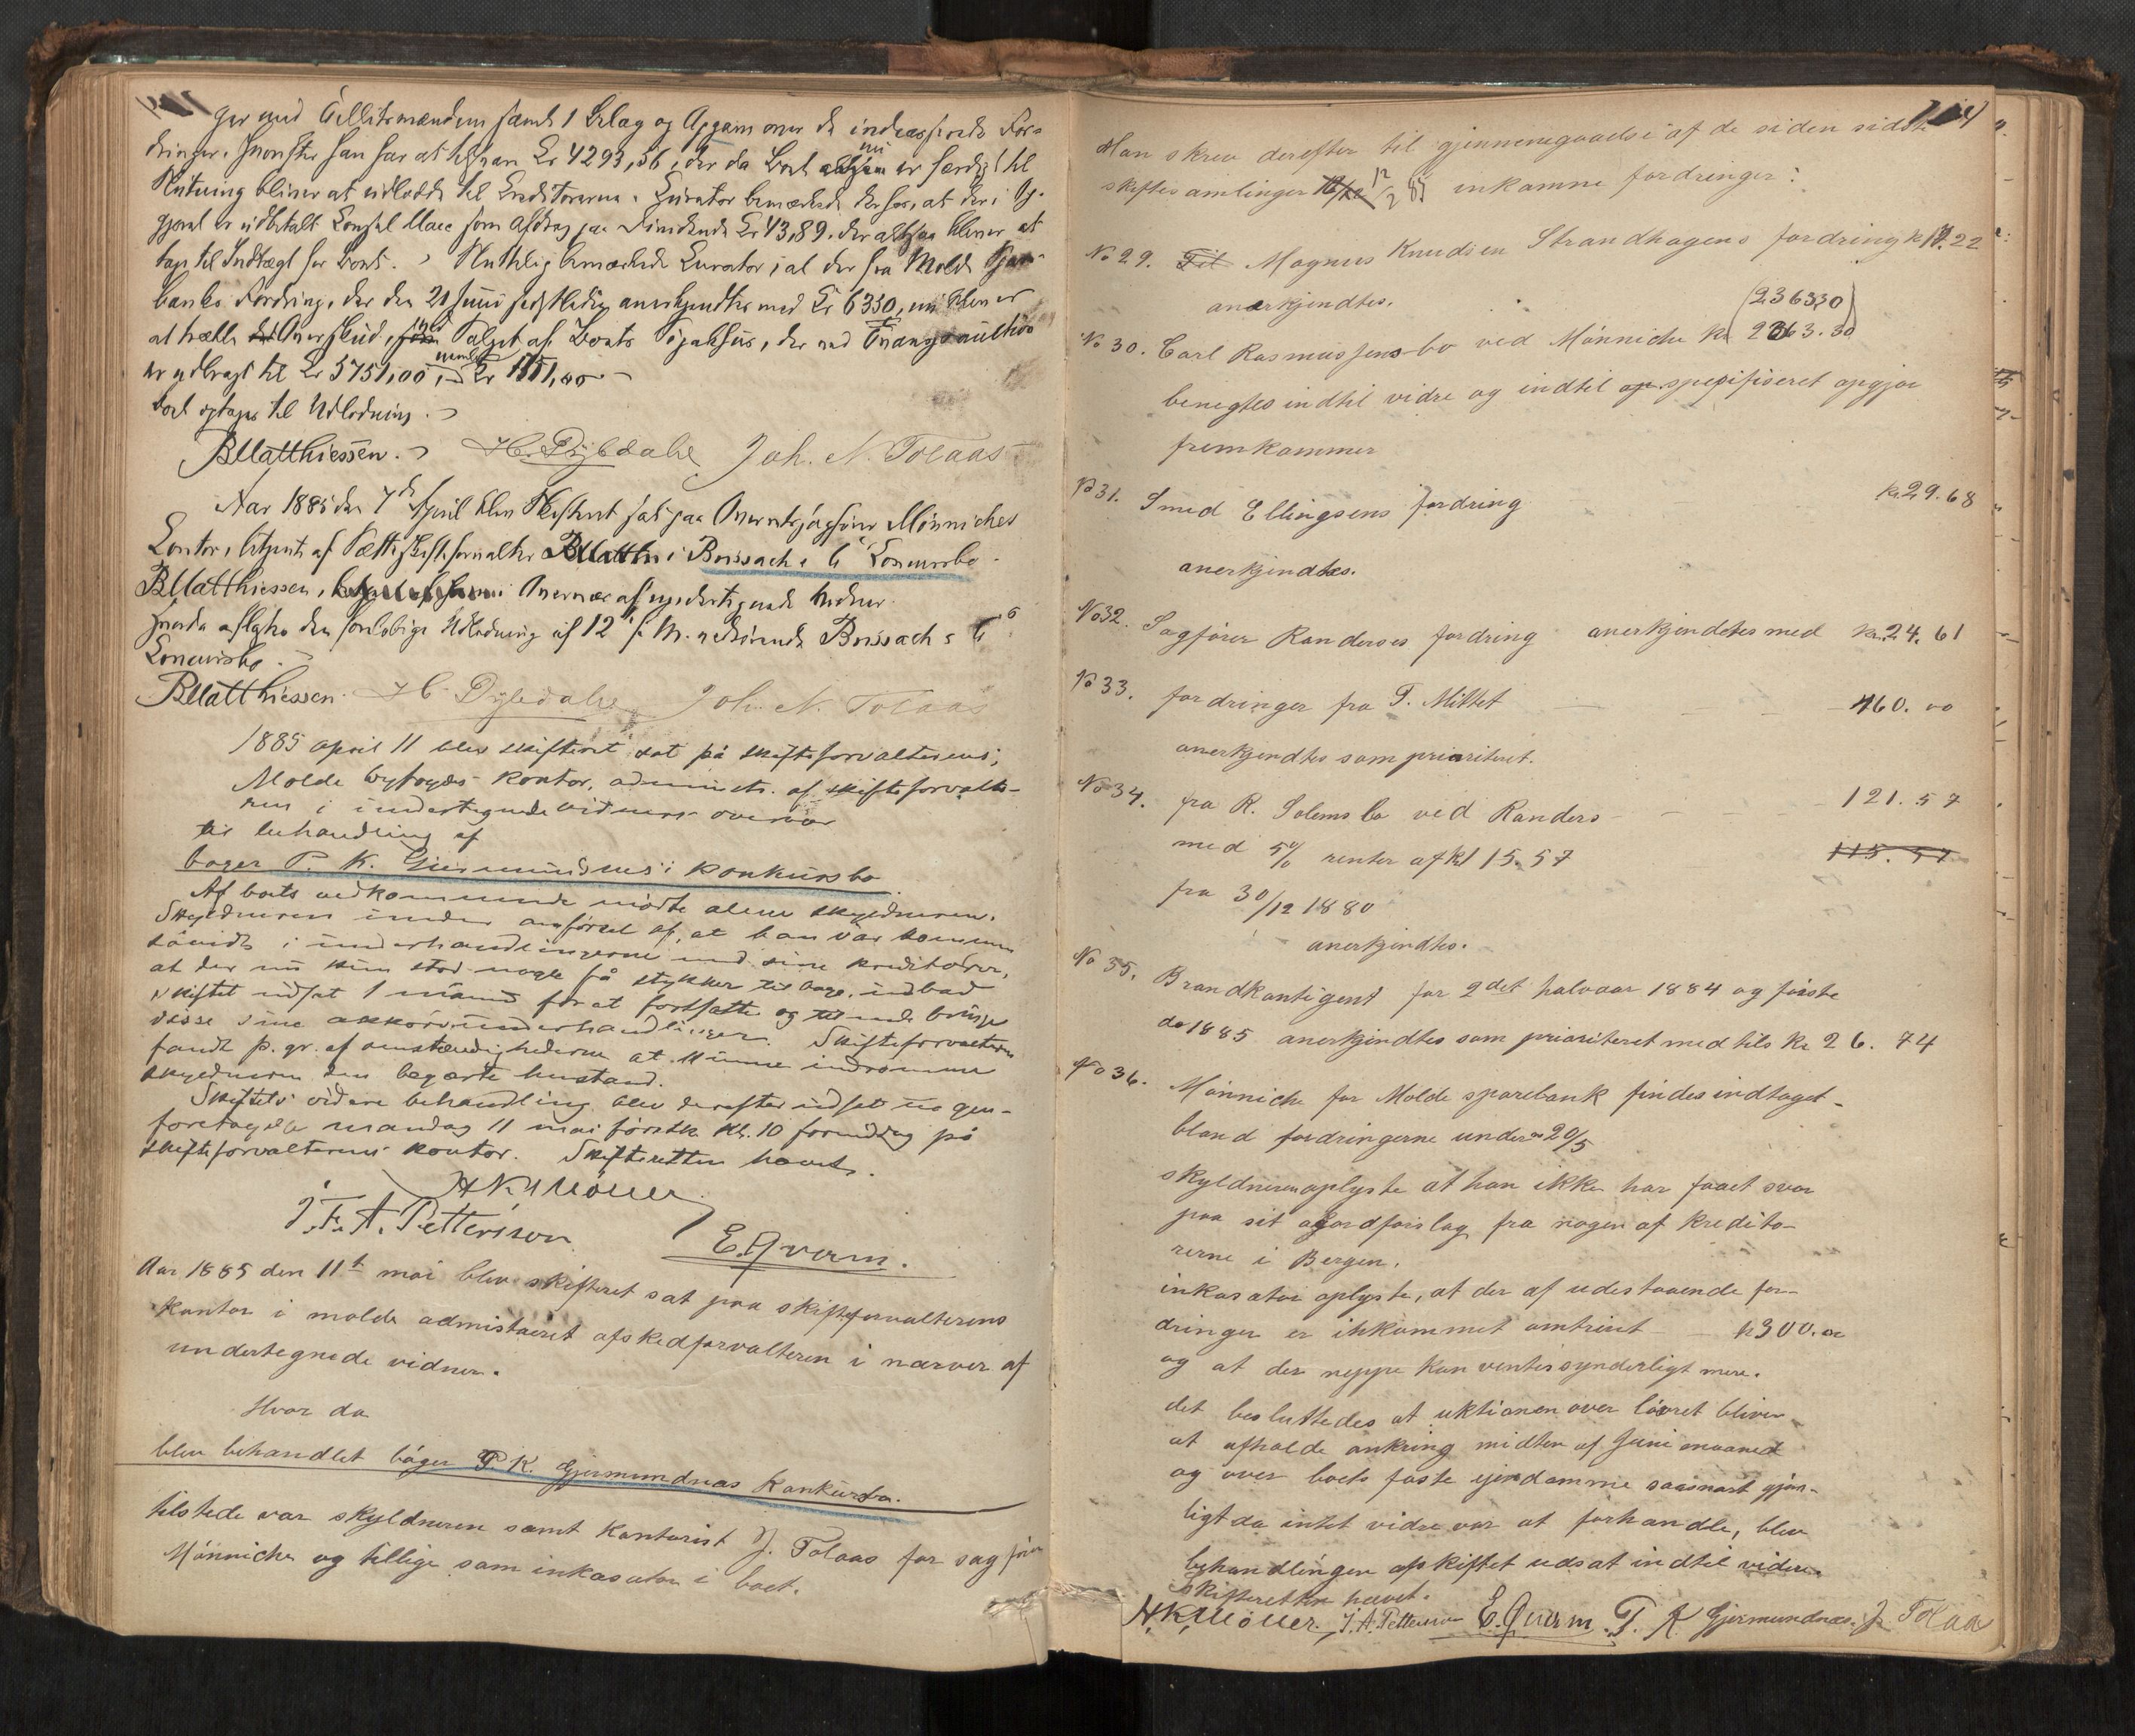 ger med Tillitsmændene samt 1 Bilag og Opgave over de indcasserede For-
dringer. Hvorefter han har at tilsvare Kr 4293,56, der da Boet nu er færdigt til
Slutning bliver at udlodde til Creditorerne. Curator bemærkede derhos, at der i Op-
gjøret er udbetalt Consul Maee som Afdrag paa Dividende Kr 43,89, der altsaa bliver at
tage til Indtægt for Boet. Slutelig bemærkede Curator, at der fra Molde Spare-
banks Fordring, der den 21 Juni sidstleden anerkjendtes med Kr 6350, nu bliver
at trække Overskud, ved Salget af Boets Søjahus, der ved Tvangsauktion
er udbragt til Kr 3751,00, nemlig Kr 1151,00
Boet optages til Udlodning.
BMatthiessen. H.C. Dybdahl Joh. N. Tolaas
Aar 1885 den 7de April blev Skifteret sat paa Overretssagfører Mönniches
Contor, betjent af Sætteskifteforvalter BMatth i Brissach & Co Concursbo
BMatthiessen, i Overvær af undertegnede Vidner.
Hvorda afsagdes den foreløbige Udlodning af 12 f. M. vedkommende Brissach & Co
Concursbo.
BMatthiessen. H C Dybdahl Joh. N. Tolaas
1885 april 11 blev skifteret sat på skifteforvalterens,
Molde byfogds kontor, administr. af skifteforvalte-
ren i undertegnede vidners overvær
til behandling af
bager P. K. Gjermundnes' konkursbo.
Af boets vedkommende mødte alene skyldneren.
Skyldneren under anførsel af, at han var kommen
såvidt i underhandlingerne med sine kreditorer,
at der nu kun stod nogle få stykker tilbage, udbad
skiftet udsat 1 måned for at fortsætte og tilende bringe
disse sine akkordunderhandlinger. Skifteforvalteren
fandt p. gr. af omstændighederne at kunne indrømme
skyldneren den begærte henstand.
Skiftets videre behandling blev derefter udsat til gen-
foretagelse mandag 11 mai førstk. Kl. 10 formiddag på
skifteforvalterens kontor. Skifteretten hævet.
HKMöller
J. F. A. Petterson E. Qvam.
Aar 1885 den 11te mai blev skifteret sat paa skifteforvalterens
kontor i molde admistreret af skedforvalteren i nærver af
undertegnede vidner.
Hvor da
blev behandlet bager P. K. Gjermundnæs Konkursbo.
tilstede var skyldneren samt kontorist J. Tolaas for sagfører
Mönniche og tillige som inkasator i boet.
114
Man skrev derefter til gjennemgaaelse af de siden sidste
skiftesamlinger 12/2 85 inkomne fordringer:
No 29. Magnus Knudsen Strandhagens fordring kr 11.22
anerkjendtes.
(2363,30)
No 30. Carl Rasmussens bo ved Mönniche kr 2363.30
benegtes indtil vidre og indtil spesifiseret opgjør
fremkommer
No 31. Smed Ellingsens fordring kr 29.68
anerkjendtes.
No 32. Sagfører Randerses fordring anerkjendtes med kr. 24.61
No 33. fordringer fra T. Mittet 460.00
anerkjendtes som prioriteret.
No 34. fra R. Solems bo ved Randers 121.57
med 5% renter af kr 115.57 115.57
fra 30/12 1880
anerkjendtes.
No 35. Brandkontigent for 2det halvaar 1884 og første
do 1885 anerkjendtes som prioriteret med tils kr 26.74
No 36. Mönniche for Molde sparebank findes indtaget
bland fordringerne under 20/5
skyldneren oplyste at han ikke har faaet svar
paa sit akordforslag fra nogen af kredito-
rerne i Bergen.
inkasator oplyste, at der af udestaaende for-
dringer er inkommet omtrint kr 300.00
og at der neppe kan ventes synderligt mere.
det besluttedes at uktionen over løsøret bliver
at afholde omkring midten af Juni maaned
og over boets faste ejendomme saasnart gjør-
ligt da intet vidre var at forhandle, blev
behandlingen af skiftet udsat indtil videre.
Skifteretten hævet.
H.K.Möller. J. A. Petterson E. Qvam. P. K. Gjermundnæs. J. Tolaa